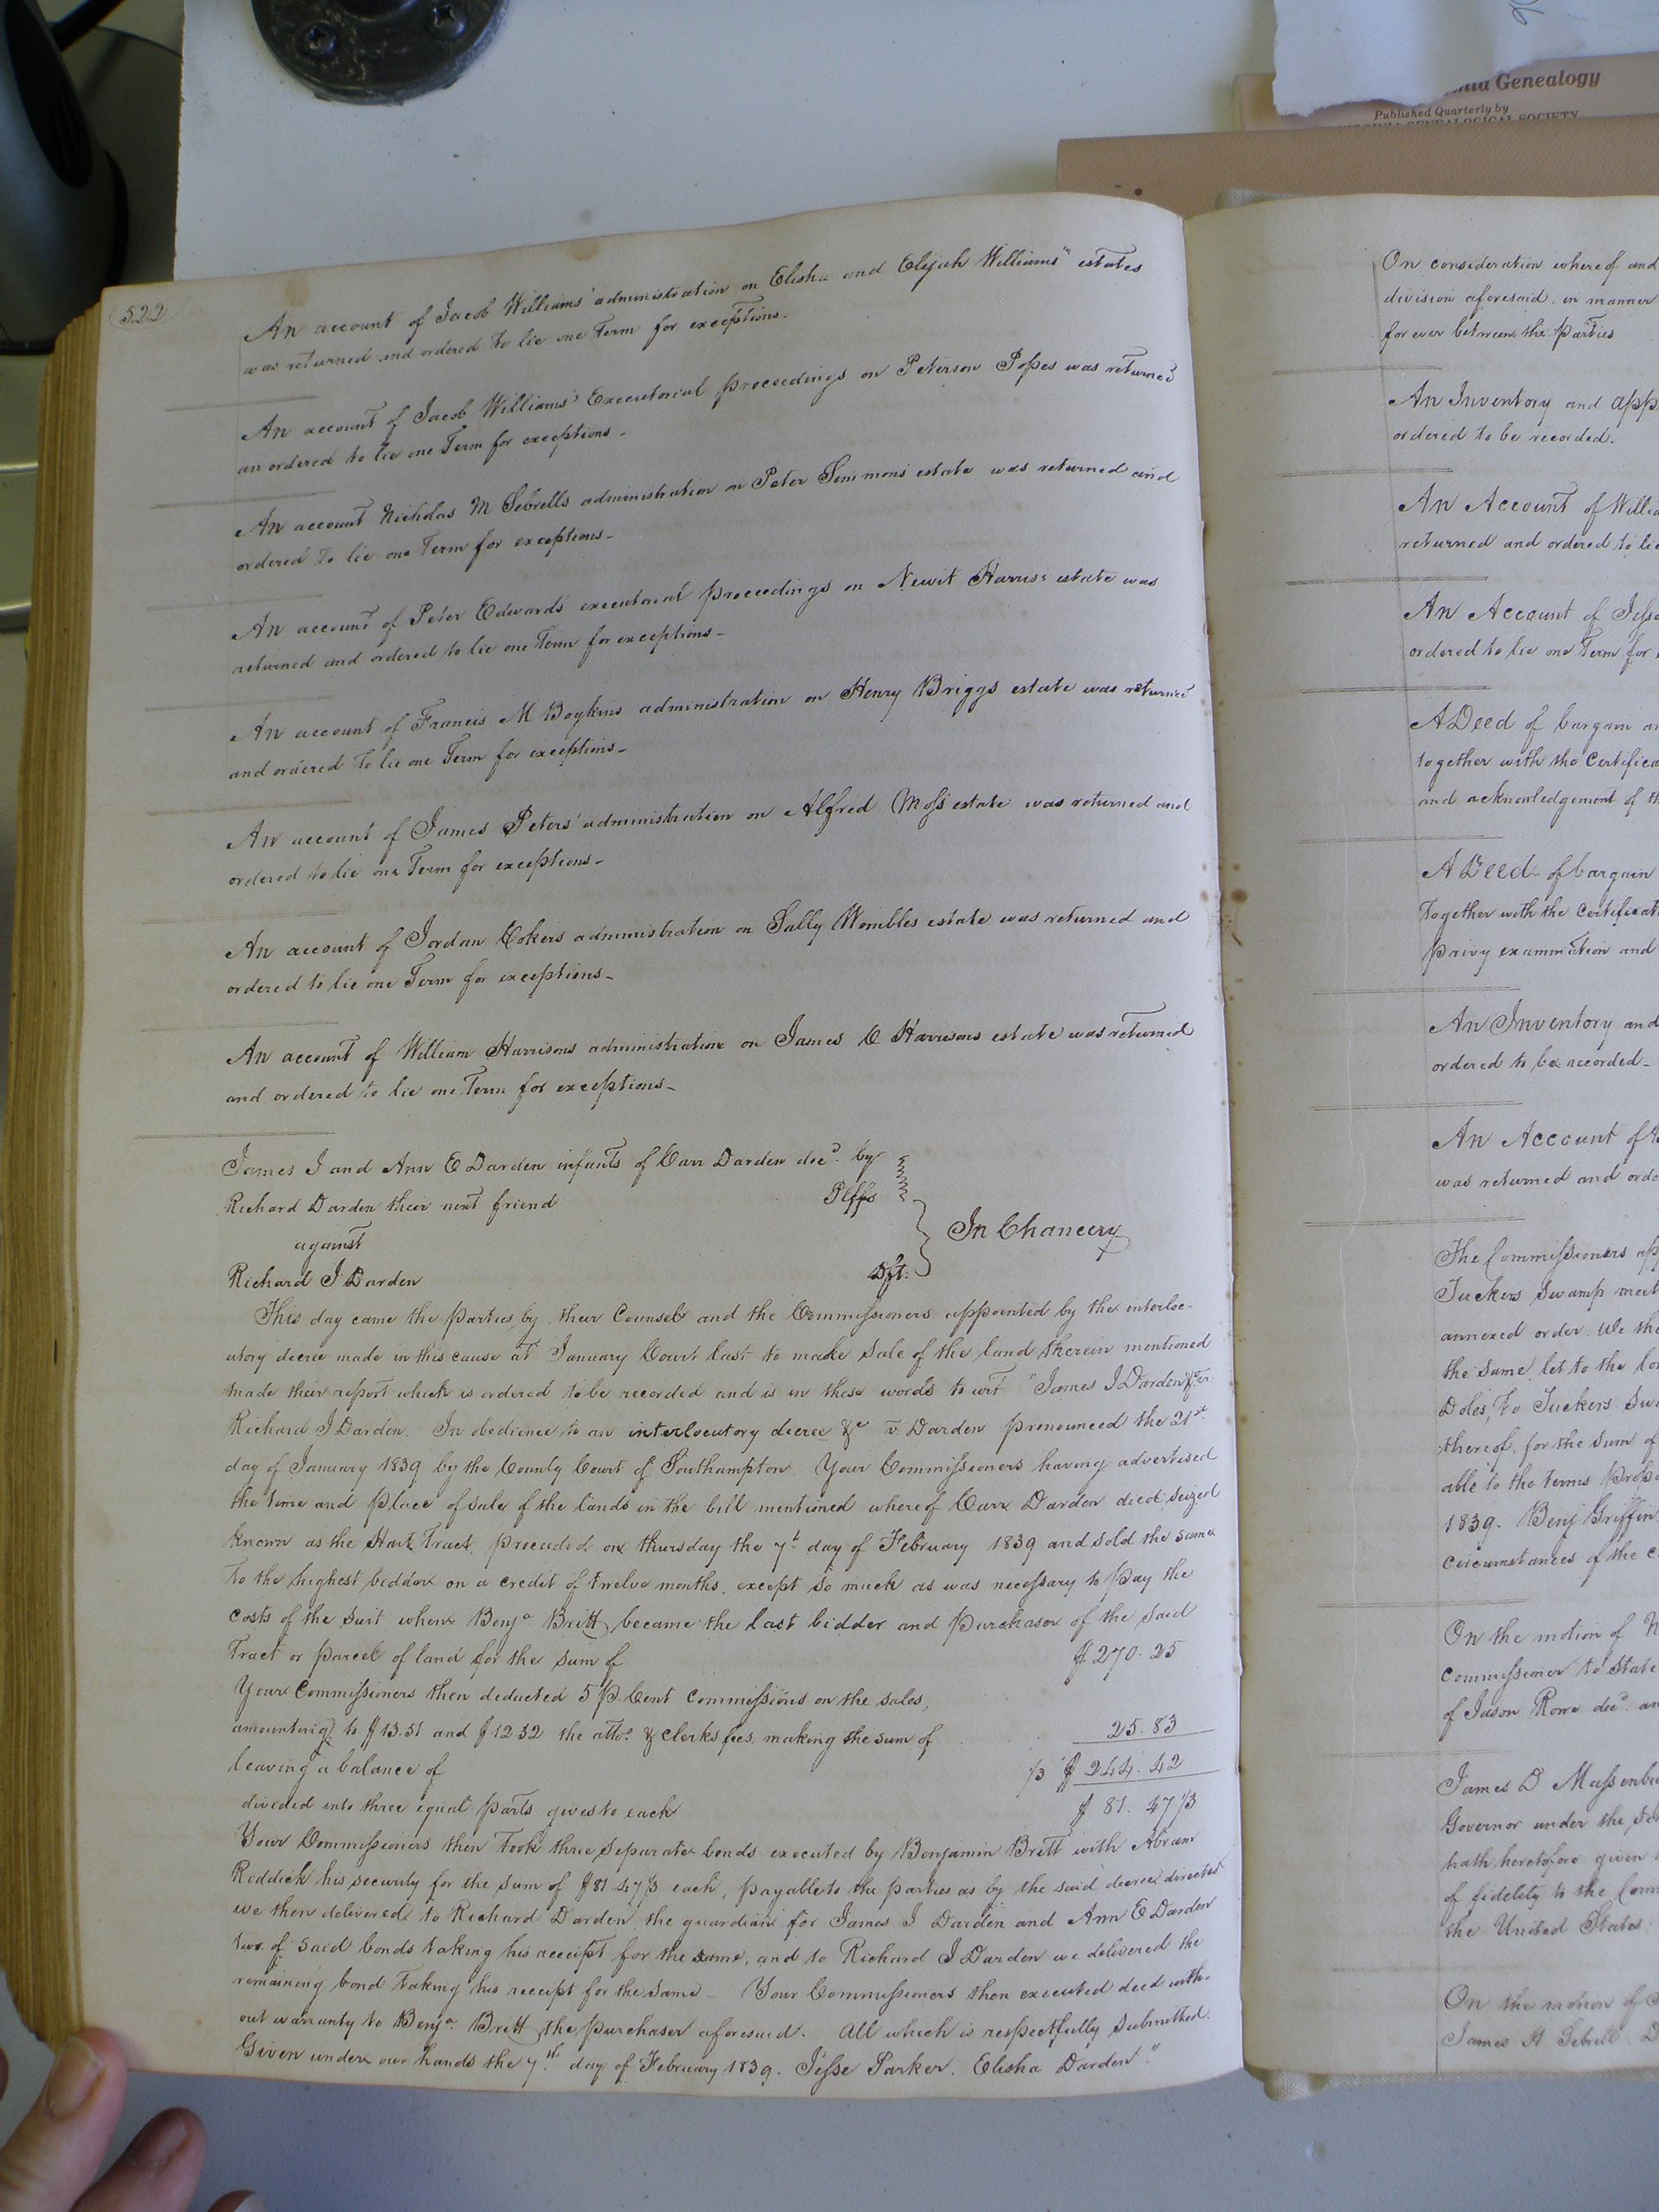 nia Genealogy
Published Quarterly by
GENEALOGICAL SOCIETY
522
An account of Jacob Williams' administration on Elisha and Elijah Williams" estates
was returned and ordered to lie one Term for exceptions.
An account of Jacob Williams' Executorial proceedings on Peterson Popes was returned
an ordered to lie one Term for exceptions -
An account Nicholas M Sebrells administration on Peter Simmons estate was returned and
ordered to lie one Term for exceptions -
An account of Peter Edwards executorial proceedings on Newit Harriss estate was
returned and ordered to lie one Term for exceptions -
An account of Francis M Boykins administration on Henry Briggs estate was returned
and ordered to lie one Term for exceptions -
An account of James Peters' administration on Alfred Moss' estate was returned and
ordered to lie one Term for exceptions -
An account of Jordan Cokers administration on Sally Wombles estate was returned and
ordered to lie one Term for exceptions -
An account of William Harrisons administration on James C Harrisons estate was returned
and ordered to lie one Term for exceptions -
James J and Ann E Darden infants of Carr Darden decd. by
Richard Darden their next friend Plffs
against In Chancery
Richard J Darden Dft.
This day came the parties by their Counsel and the Commissioners appointed by the interloc-
utory decree made in this cause at January Court last to make sale of the land therein mentioned
made their report which is ordered to be recorded and is in these words to wit "James J Darden &c vs.
Richard J Darden. In obedience to an interlocutory decree &c v. Darden pronounced the 21st.
day of January 1839 by the County Court of Southampton. Your Commissioners having advertised
the time and place of sale of the lands in the bill mentioned whereof Carr Darden died, seized
known as the Hart Tract, proceeded on thursday the 7th. day of February 1839 and sold the same
to the highest bidder on a credit of twelve months, except so much as was necessary to pay the
costs of the suit when Benja Britt became the last bidder and purchaser of the said
Tract or parcel of land for the sum of $ 270.25
Your Commissioners then deducted 5 P. Cent commissions on the sales,
amounting to $13.51 and $12.32 the atto. & clerks fees, making the sum of 25.83
leaving a balance of 1/3 $ 244.42
divided into three equal parts gives to each $ 81.47 1/3
Your Commissioners then took three separate bonds executed by Benjamin Britt with Abram
Reddick his security for the sum of $81.47 1/3 each, payable to the parties as by the said decree directed
we then delivered to Richard Darden the guardian for James J Darden and Ann E Darden
two of said bonds taking his receipt for the same, and to Richard J Darden we delivered the
remaining bond taking his receipt for the same - Your Commissioners then executed deed with-
out warranty to Benja. Britt the purchaser aforesaid. All which is respectfully submitted.
Given under our hands the 7.th day of February 1839. Jesse Parker. Elisha Darden."
On consideration whereof and
division aforesaid in manner
for ever between the parties
An Inventory and app
ordered to be recorded.
An Account of Willia
returned and ordered to lie
An Account of Jesse
ordered to lie one Term for
A Deed of bargain an
together with the Certifica
and acknowledgement of th
A Deed of bargain
Together with the Certificat
privy examination and
An Inventory and
ordered to be recorded -
An Account of
was returned and orde
The Commissioners ap
Tuckers Swamp meet
annexed order. We the
the same, let to the lo
Doles, to Tuckers Swa
thereof, for the sum of
able to the terms propo
1839. Benj Griffin
circumstances of the c
On the motion of
Commissioner to state
of Jason Rowe decd. an
James D Massenbu
Governor under the
hath heretofore given
of fidelity to the Com
the United States.
On the motion of
James H Sebrell. D